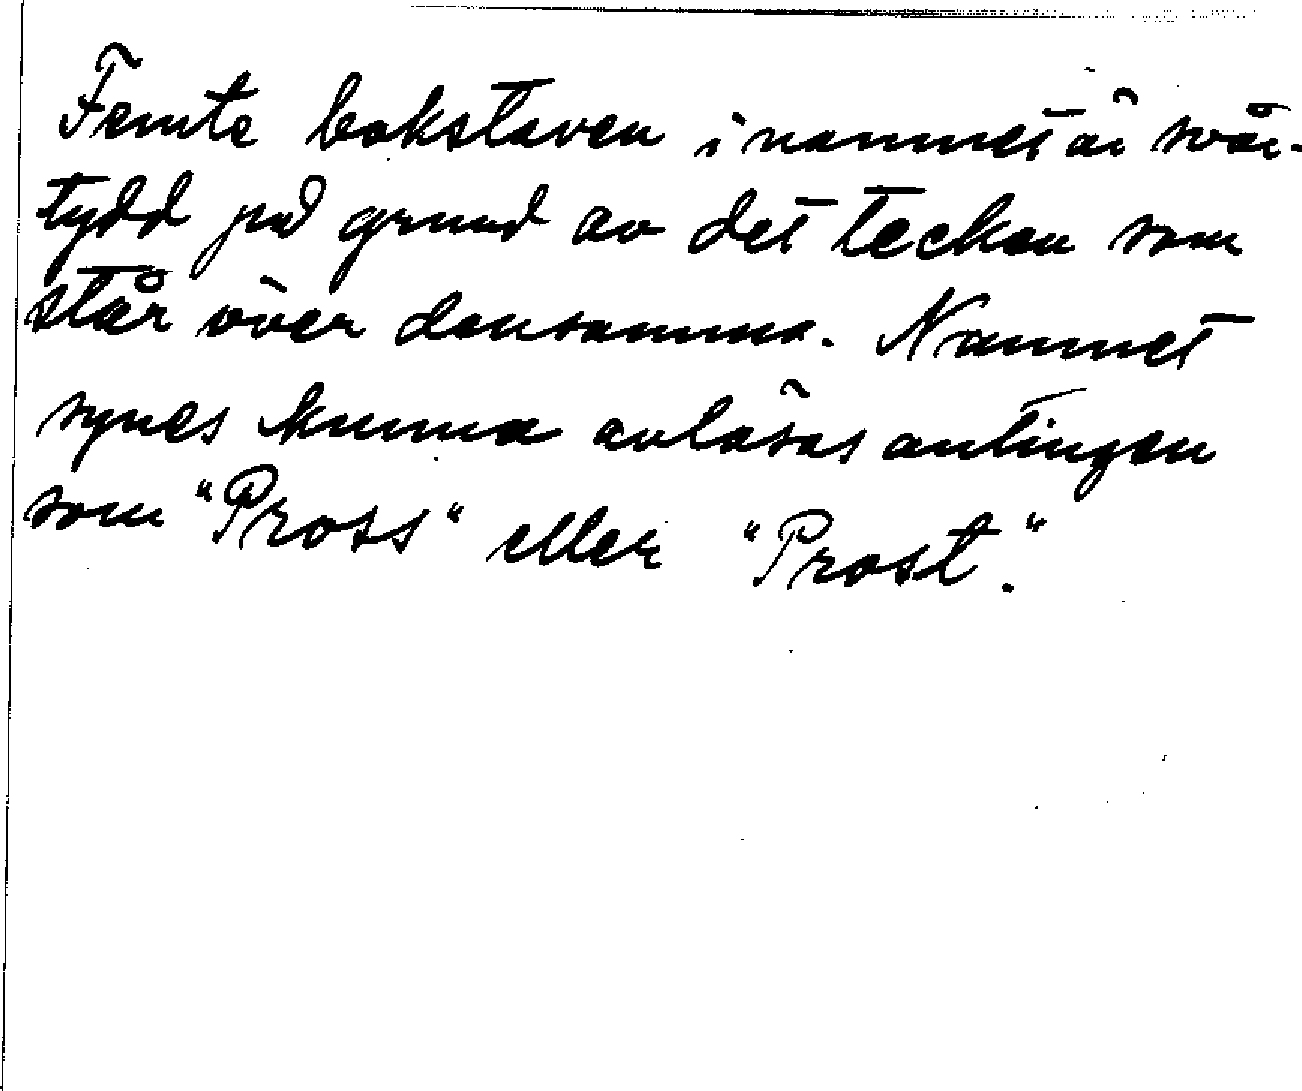 Femte bokstaven i namnet är svår-
tydd på grund av det tecken som
står över densamma. Namnet
synes kunna avläsas antingen
som "Pross" eller "Prost."